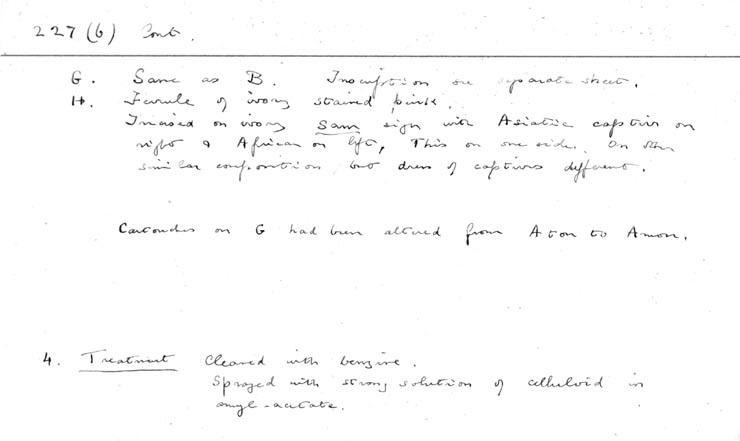 227 (6) Cont.
G. Same as B. Inscription see separate sheet.
H. Ferrule of ivory stained pink.
Incised on ivory Sam sign with Asiatic captive on
right & African on left, This on one side. On other
similar composition but dress of captives different.
Cartouches on G had been altered from Aton to Amon.
4. Treatment Cleaned with benzine.
Sprayed with strong solution of celluloid in
amyl-acetate.